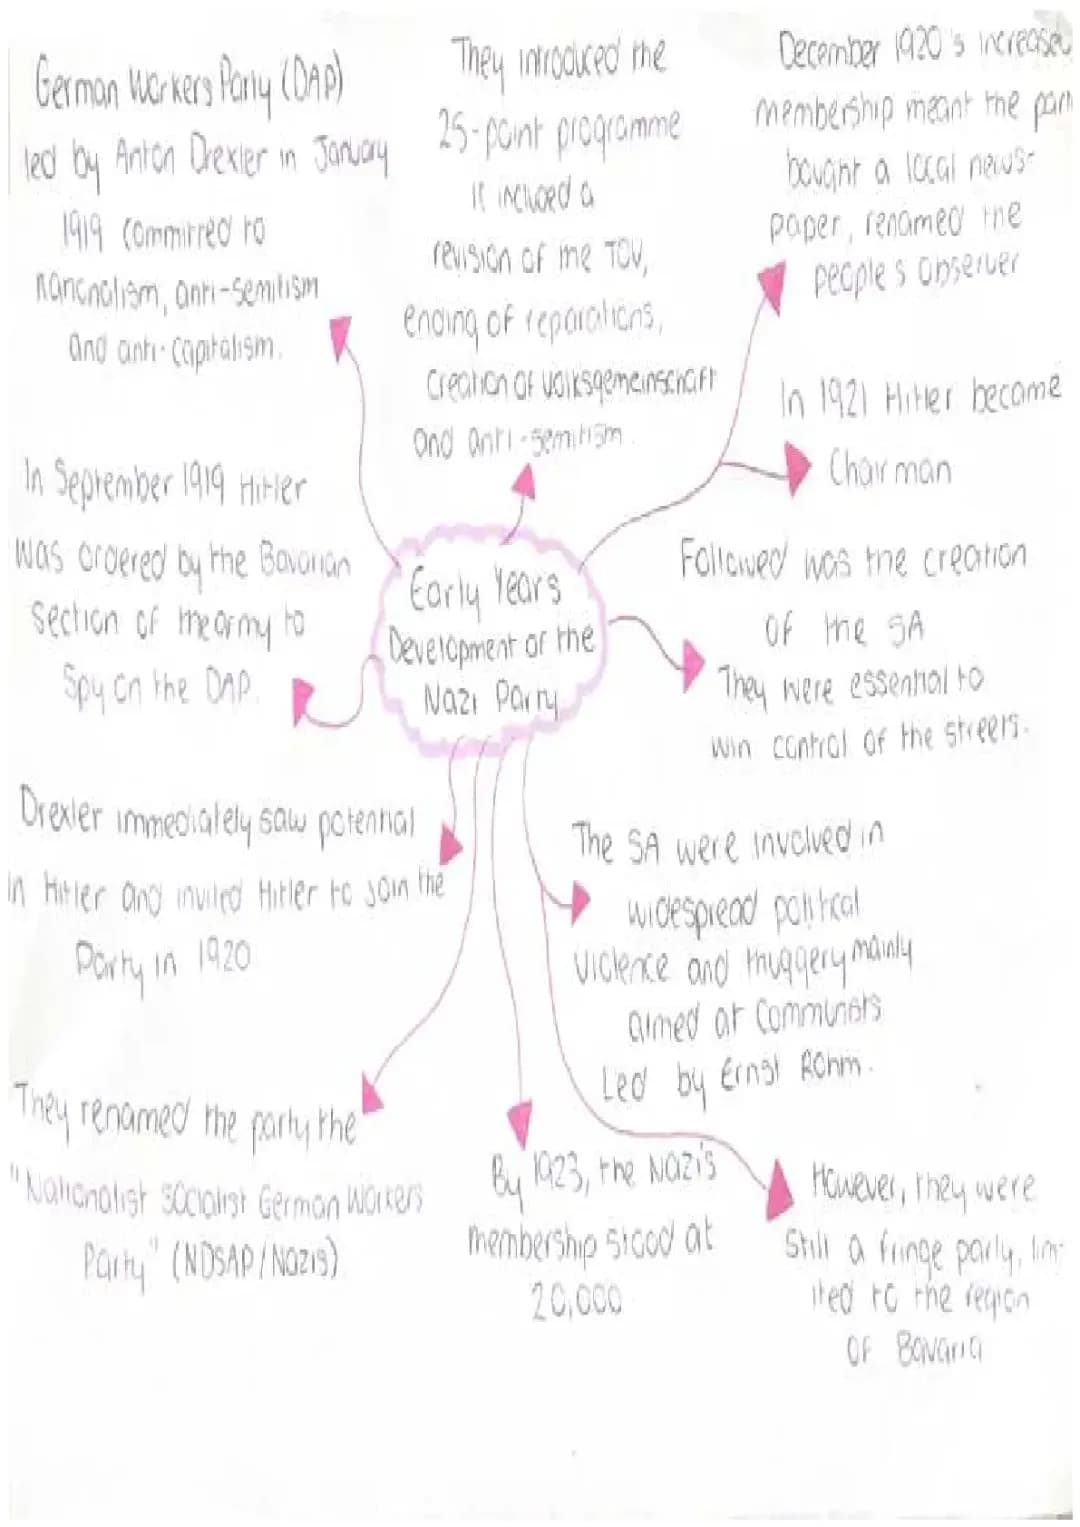 German Workers Party (DAP)
led by Anton Drexler in January
1919 committed to
nationalism, anti-semitism
and anti-capitalism.
They introduced the
25-point programme
It included a
revision of the TOV,
ending of reparations,
creation of volksgemeinschaft
and anti-semitism.
December 1920's increased
membership meant the part
bought a local news-
paper, renamed the
people's observer
In 1921 Hitler became
Chairman
In September 1919 Hitler
was ordered by the Bavarian
section of the army to
Spy on the DAP.
Early Years
Development of the
Nazi Party
Followed was the creation
of the SA
They were essential to
win control of the streets.
Drexler immediately saw potential
in Hitler and invited Hitler to join the
Party in 1920
The SA were involved in
widespread political
violence and thuggery mainly
aimed at Communists
Led by Ernst Rohm.
They renamed the party the
"Nationalist Socialist German Workers
Party" (NDSAP/Nazis)
By 1923, the Nazi's
membership stood at
20,000
However, they were
still a fringe party, lim-
ited to the region
of Bavaria